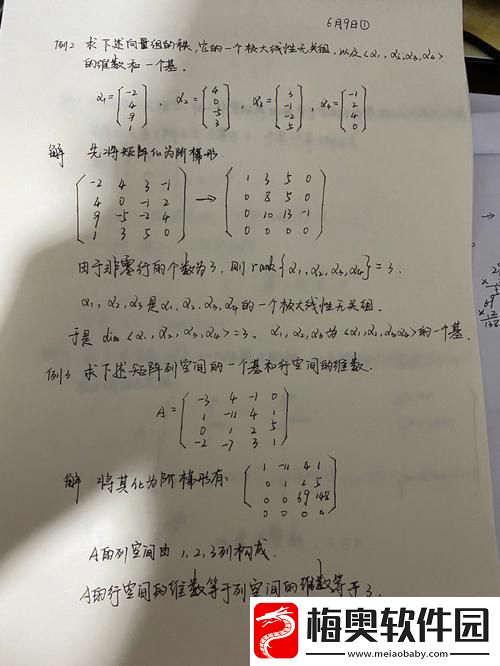 6月9日①
例2 求下述向量组的秩,它的一个极大线性无关组,以及<α₁,α₂,α₃,α₄>
的维数和一个基.
α₁=(-2 4 9 1), α₂=(4 0 -5 3), α₃=(3 -1 -2 5), α₄=(-1 2 4 0)
解 先将矩阵化为阶梯形.
-2 4 3 -1 → 1 3 5 0
4 0 -1 2 0 8 5 0
9 -5 -2 4 0 10 13 -1
1 3 5 0 0 0 0 0
由于非零行的个数为3,则rank{α₁,α₂,α₃,α₄}=3.
α₁,α₂,α₃是α₁,α₂,α₃,α₄的一个极大线性无关组.
于是 dim<α₁,α₂,α₃,α₄>=3, α₁,α₂,α₃为<α₁,α₂,α₃,α₄>的一个基.
例3 求下述矩阵列空间的一个基和行空间的维数.
A=
-3 4 -1 0
1 -11 4 1
0 1 2 5
-2 -7 3 1
解 将其化为阶梯形有
1 -11 4 1
0 1 2 5
0 0 69 148
0 0 0 0
A的列空间由1,2,3列构成.
A的行空间的维数等于列空间的维数等于3.
梅奥软件园
www.meiaobaby.com